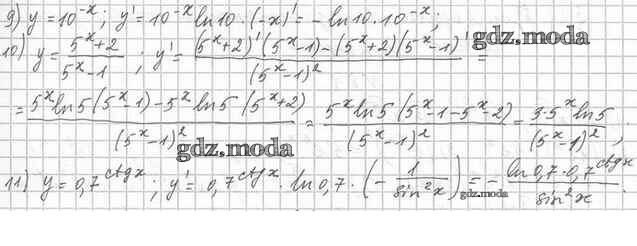 9) y = 10^{-x}; y' = 10^{-x} ln10 · (-x)' = - ln10 · 10^{-x};
10) y = \frac{5^x+2}{5^x-1}; y' = \frac{(5^x+2)'(5^x-1)-(5^x+2)(5^x-1)'}{(5^x-1)^2} =
gdz.moda
= \frac{5^x ln5 (5^x-1)-5^x ln5 (5^x+2)}{(5^x-1)^2} = \frac{5^x ln5 (5^x-1-5^x-2)}{(5^x-1)^2} = \frac{3·5^x ln5}{(5^x-1)^2};
gdz.moda
11) y = 0,7^{ctgx}; y' = 0,7^{ctgx} · ln0,7 · (-\frac{1}{sin^2x}) = -\frac{ln0,7·0,7^{ctgx}}{sin^2x}.
gdz.moda